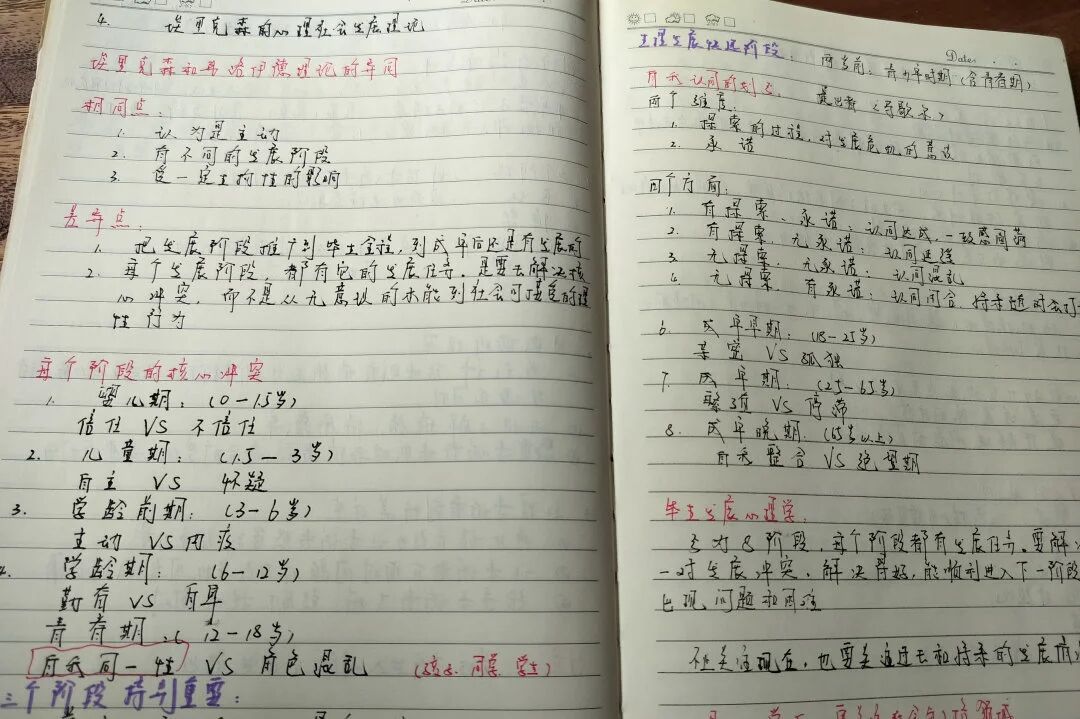 4. 埃里克森的心理社会发展理论
埃里克森和弗洛伊德理论的异同
相同点：
1. 认为是主动
2. 有不同的发展阶段
3. 受一定生物性的影响
差异点：
1. 把发展阶段推广到毕生全程，到成年后还是有发展的
2. 每个发展阶段，都有它的发展任务。是要去解决核
心冲突，而不是从无意识的本能到社会可接受的理
性行为
每个阶段的核心冲突
1. 婴儿期：(0-1.5岁)
信任 VS 不信任
2. 儿童期：(1.5-3岁)
自主 VS 怀疑
3. 学龄前期：(3-6岁)
主动 VS 内疚
4. 学龄期：(6-12岁)
勤奋 VS 自卑
青春期：(12-18岁)
自我同一性 VS 角色混乱 (孩子、同学、学生)
三个阶段特别重要：
Date:
生理发展快速阶段：两岁前；青少年时期(含青春期)
自我认同的划分
两个维度：
1. 探索的过程，对发展危机的意识
2. 承诺
四个方面：
1. 有探索、承诺：认同达成，一致感同葫
2. 有探索，无承诺：认同延缓
3. 无探索，无承诺：认同混乱
4. 无探索，有承诺：认同闭合
6. 成年早期：(18-25岁)
亲密 VS 孤独
7. 成年期：(25-65岁)
繁殖 VS 停滞
8. 成年晚期：(65岁以上)
自我整合 VS 绝望期
毕生发展心理学：
分为8阶段，每个阶段都有发展任务。要解
一对发展冲突，解决得好，能顺利进入下一阶段
出现问题和困难
不但关注现在，也要关注过去和将来的发展情